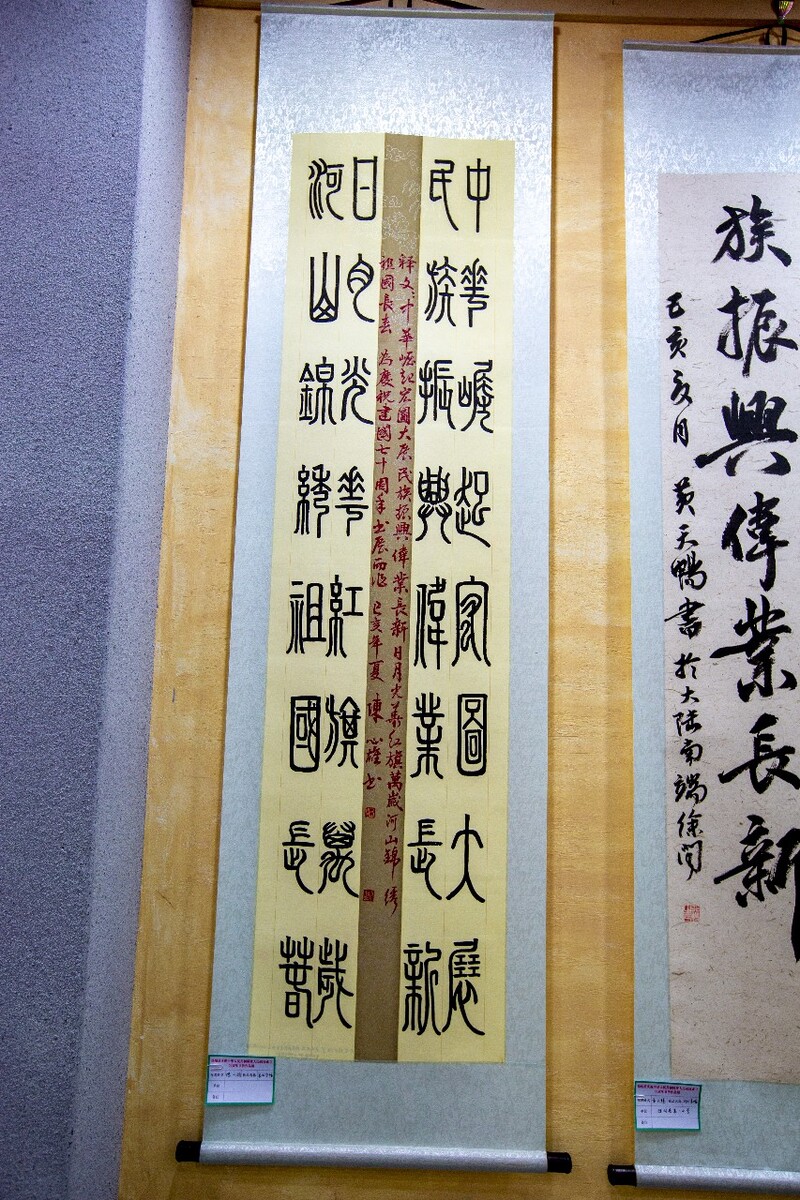 中華崛起宏圖大展
民族振興偉業長新
释文:中華崛起宏圖大展民族振興偉業長新日月光華红旗萬歲河山錦绣
祖國長春 為慶祝建國七十周年书展而作 己亥年夏 陳心雄书
日月光華紅旗萬歲
河山錦綉祖國長春
族振興偉業長新
己亥夏月 黄天暢書於大陸南端徐闻